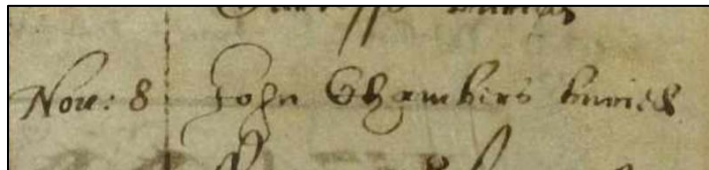 Nou: 8 John Chambers buried